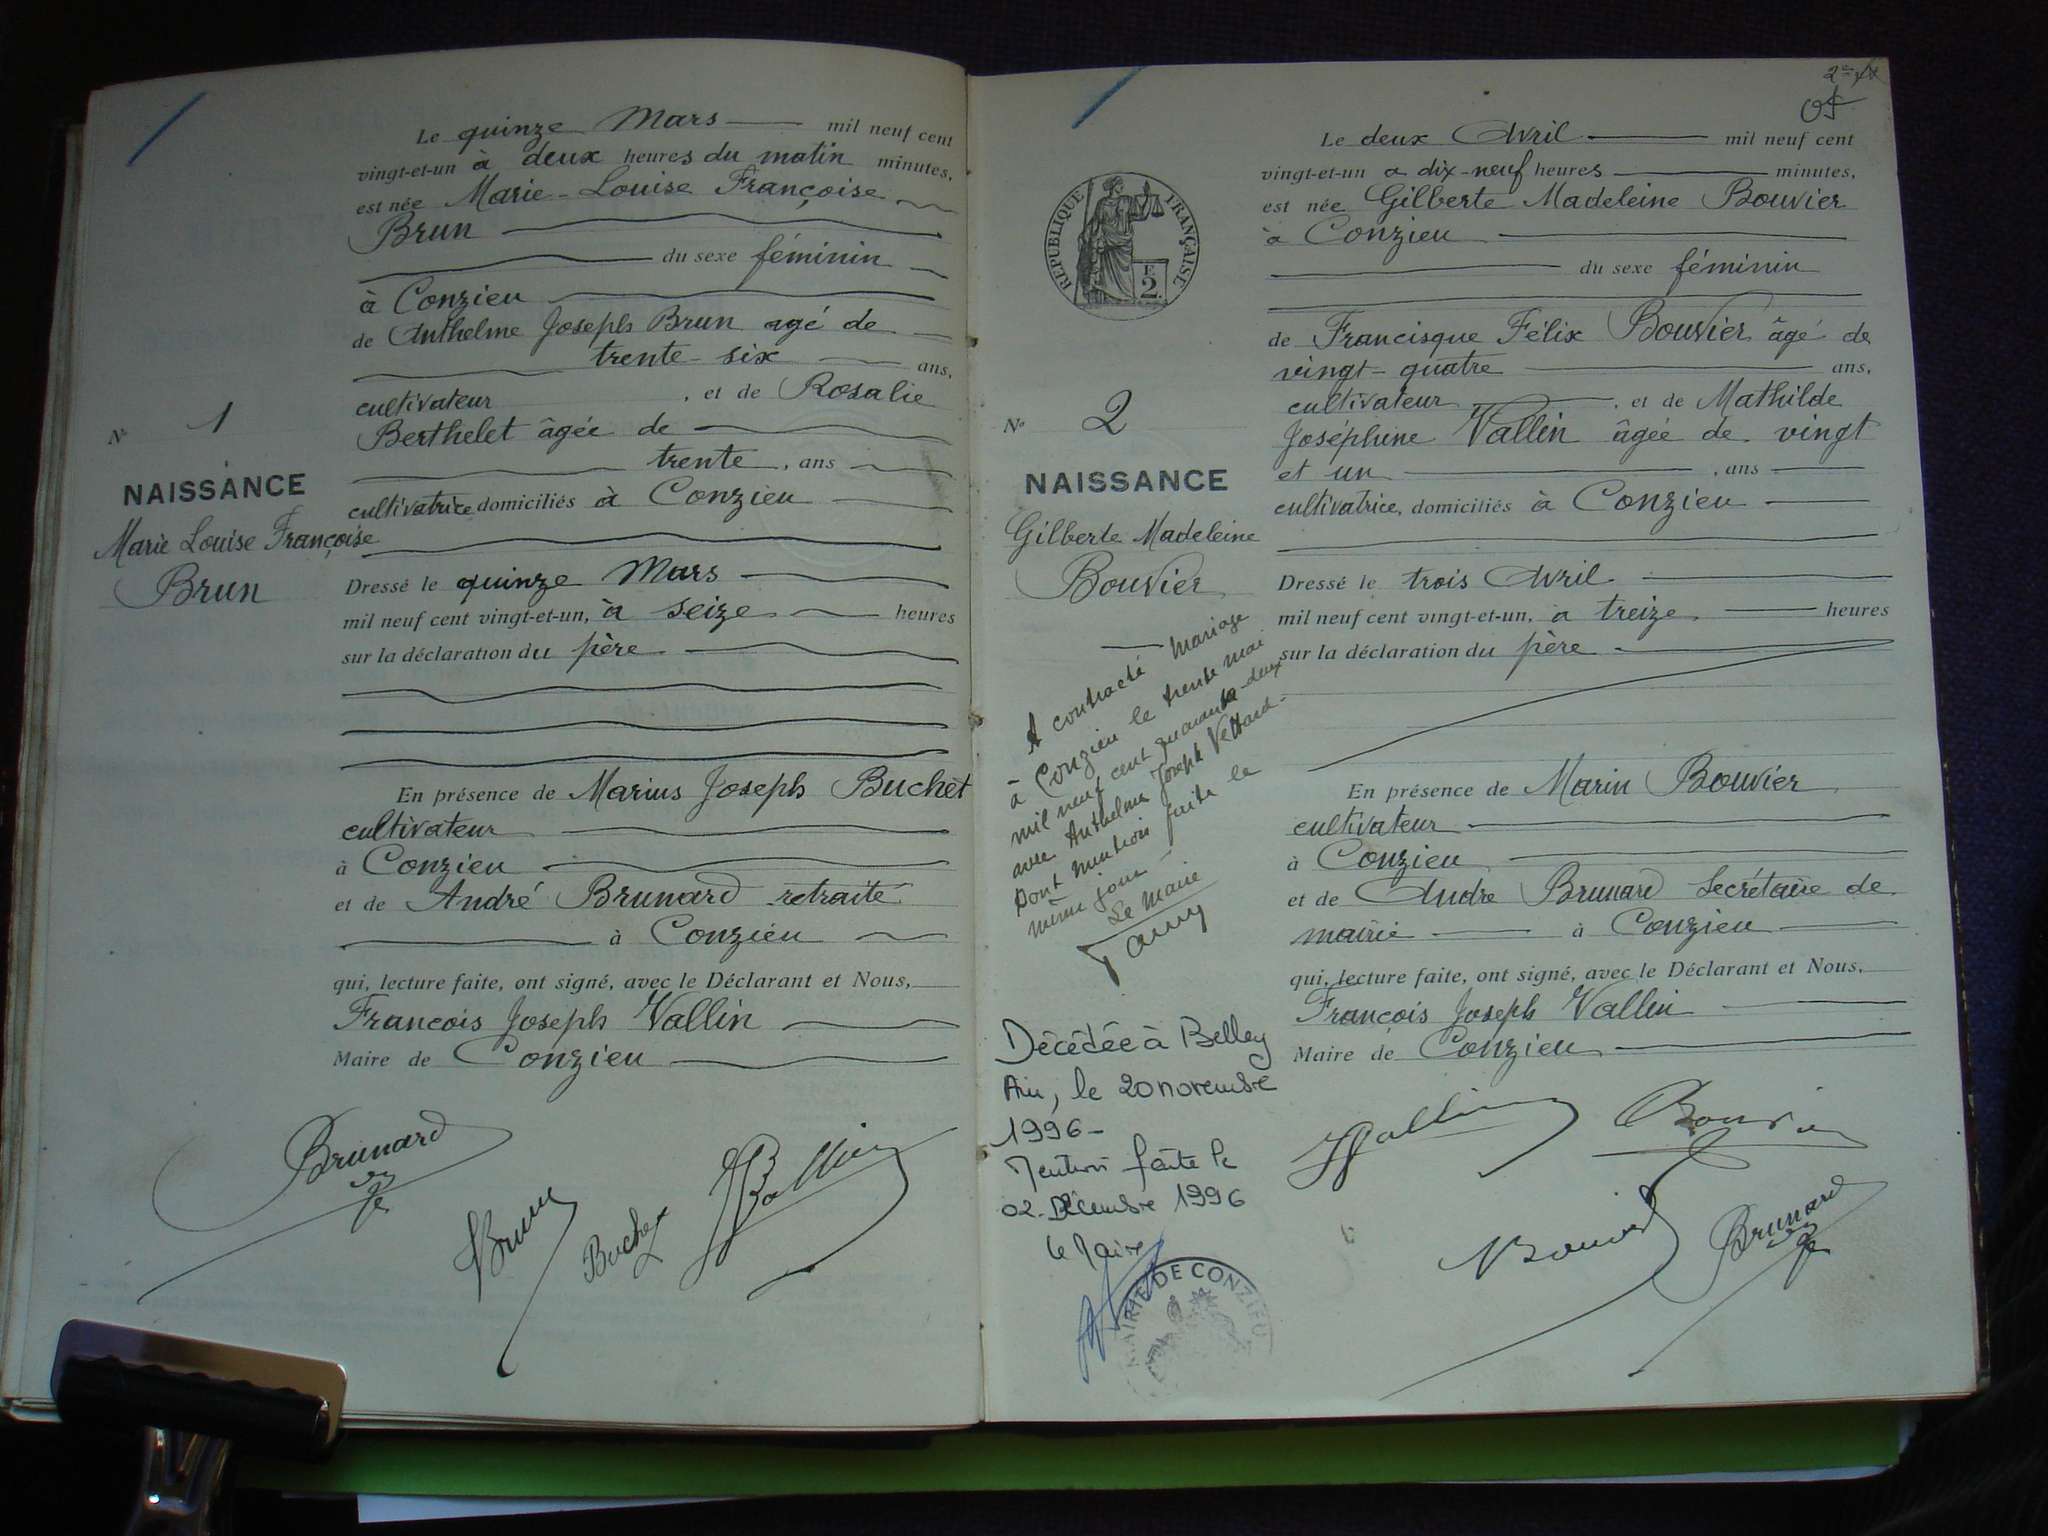 Le quinze Mars mil neuf cent
vingt-et-un à deux heures du matin minutes,
est née Marie-Louise Françoise
Brun
du sexe féminin
à Conzieu
de Anthelme Joseph Brun agé de
trente-six ans,
cultivateur, et de Rosalie
Berthelet âgée de
trente, ans
cultivatrice domiciliés à Conzieu
Dressé le quinze Mars
mil neuf cent vingt-et-un, à seize heures
sur la déclaration du père
En présence de Marius Joseph Buchet
cultivateur
à Conzieu
et de André Brunard retraité
à Conzieu
qui, lecture faite, ont signé, avec le Déclarant et Nous,
François Joseph Vallin
Maire de Conzieu
N° 1
NAISSANCE
Marie Louise Françoise
Brun
Brunard
Brun
Buchet
JVallin
2
RÉPUBLIQUE FRANÇAISE
E
2
N° 2
NAISSANCE
Gilberte Madeleine
Bouvier
A contracté mariage
à Conzieu le trente mai
mil neuf cent quarante-deux
avec Anthelme Joseph Vettard
Dont mention faite le
même jour
Le Maire
Décédée à Belley
Ain, le 20 novembre
1996-
Mention faite le
02 Décembre 1996
le Maire
MAIRIE DE CONZIEU
Le deux Avril mil neuf cent
vingt-et-un a dix-neuf heures minutes,
est née Gilberte Madeleine Bouvier
à Conzieu
du sexe féminin
de Francisque Félix Bouvier âgé de
vingt-quatre ans,
cultivateur, et de Mathilde
Joséphine Vallin âgée de vingt
et un, ans
cultivatrice, domiciliés à Conzieu
Dressé le trois Avril
mil neuf cent vingt-et-un, a treize heures
sur la déclaration du père
En présence de Marin Bouvier
cultivateur
à Conzieu
et de Andre Brunard Secrétaire de
mairie à Conzieu
qui, lecture faite, ont signé, avec le Déclarant et Nous,
François Joseph Vallin
Maire de Conzieu
JVallin
Bouvier
Brunard